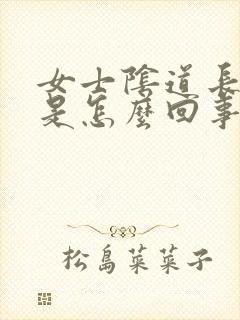 女士陰道長
是怎麼回事
松島菜菜子